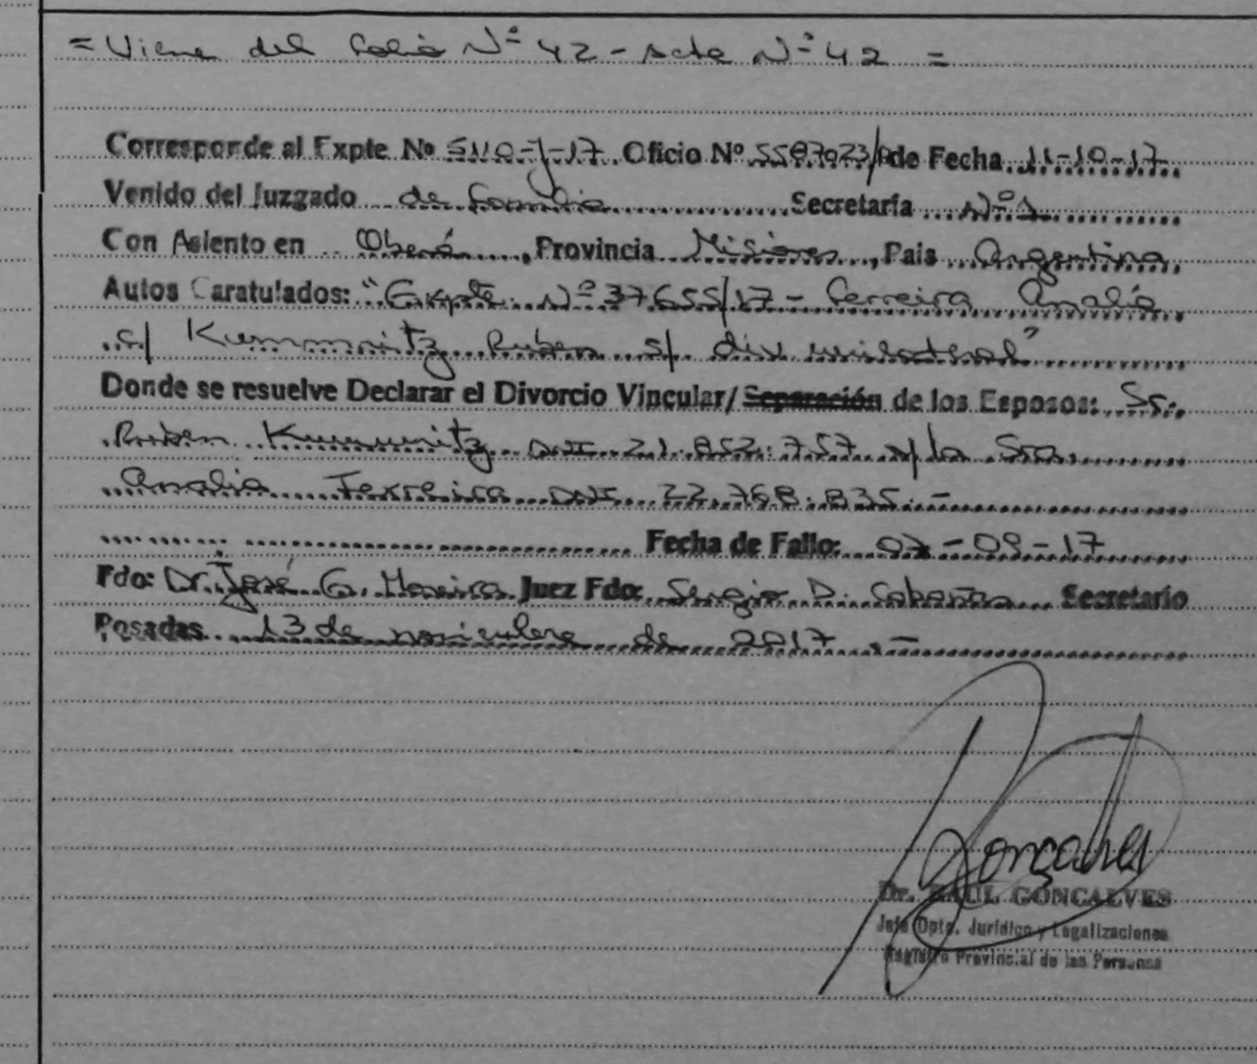 = Viene del folio Nº 42 - Acta Nº 42 =
Corresponde al Expte Nº 5110-J-17 Oficio Nº 5587023/ de Fecha 11-10-17
Venido del Juzgado de Familia Secretaría Nº 1
Con Asiento en Oberá, Provincia Misiones, País Argentina,
Autos Caratulados: "Expte. Nº 37655/17 - Ferreira Analía
c/ Kummritz Ruben s/ div. unilateral"
Donde se resuelve Declarar el Divorcio Vincular/ Separación de los Esposos: Sr.
Ruben Kummritz DNI 21.852.757 y/ la Sra.
Analia Ferreira DNI 22.768.835.-
Fecha de Fallo: 07-09-17
Fdo: Dr. José G. Moreira Juez Fdo: Sergio D. Cabañas Secretario
Posadas 13 de noviembre de 2017.-
Gonçalves
Dr. RAUL GONCALVES
Jefe Dpto. Jurídico y Legalizaciones
Registro Provincial de las Personas